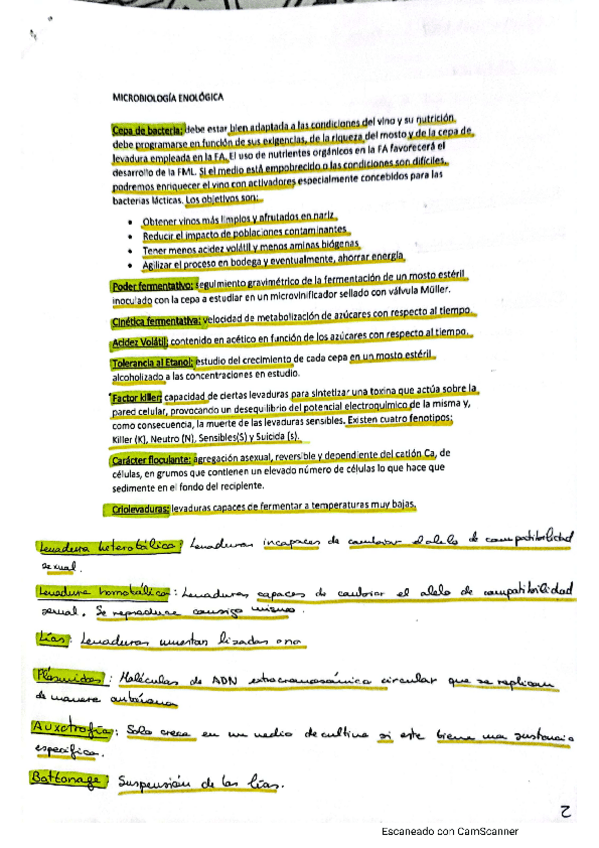 MICROBIOLOGÍA ENOLÓGICA
Cepa de bacteria: debe estar bien adaptada a las condiciones del vino y su nutrición
debe programarse en función de sus exigencias, de la riqueza del mosto y de la cepa de
levadura empleada en la FA. El uso de nutrientes orgánicos en la FA favorecerá el
desarrollo de la FML. Si el medio está empobrecido o las condiciones son difíciles,
podremos enriquecer el vino con activadores especialmente concebidos para las
bacterias lácticas. Los objetivos son:
• Obtener vinos más limpios y afrutados en nariz
• Reducir el impacto de poblaciones contaminantes
• Tener menos acidez volátil y menos aminas biógenas
• Agilizar el proceso en bodega y eventualmente, ahorrar energía
Poder fermentativo: seguimiento gravimétrico de la fermentación de un mosto estéril
inoculado con la cepa a estudiar en un microvinificador sellado con válvula Müller.
Cinética fermentativa: velocidad de metabolización de azúcares con respecto al tiempo.
Acidez Volátil: contenido en acético en función de los azúcares con respecto al tiempo.
Tolerancia al Etanol: estudio del crecimiento de cada cepa en un mosto estéril
alcoholizado a las concentraciones en estudio.
Factor killer: capacidad de ciertas levaduras para sintetizar una toxina que actúa sobre la
pared celular, provocando un desequilibrio del potencial electroquímico de la misma y,
como consecuencia, la muerte de las levaduras sensibles. Existen cuatro fenotipos:
Killer (K), Neutro (N), Sensibles(S) y Suicida (s).
Carácter floculante: agregación asexual, reversible y dependiente del catión Ca, de
células, en grumos que contienen un elevado número de células lo que hace que
sedimente en el fondo del recipiente.
Criolevaduras: levaduras capaces de fermentar a temperaturas muy bajas.
Levadura heterotálica: Levaduras incapaces de cambiar el alelo de compatibilidad
sexual.
Levadura homotálica: Levaduras capaces de cambiar el alelo de compatibilidad
sexual. Se reproduce consigo mismo.
Lías: Levaduras muertas lizadas o no
Plásmidos: Moléculas de ADN extracromosómico circular que se replican
de manera autónoma
Auxotrofía: Solo crece en un medio de cultivo si este tiene una sustancia
específica.
Battonage: Suspensión de las lías.
2
Escaneado con CamScanner